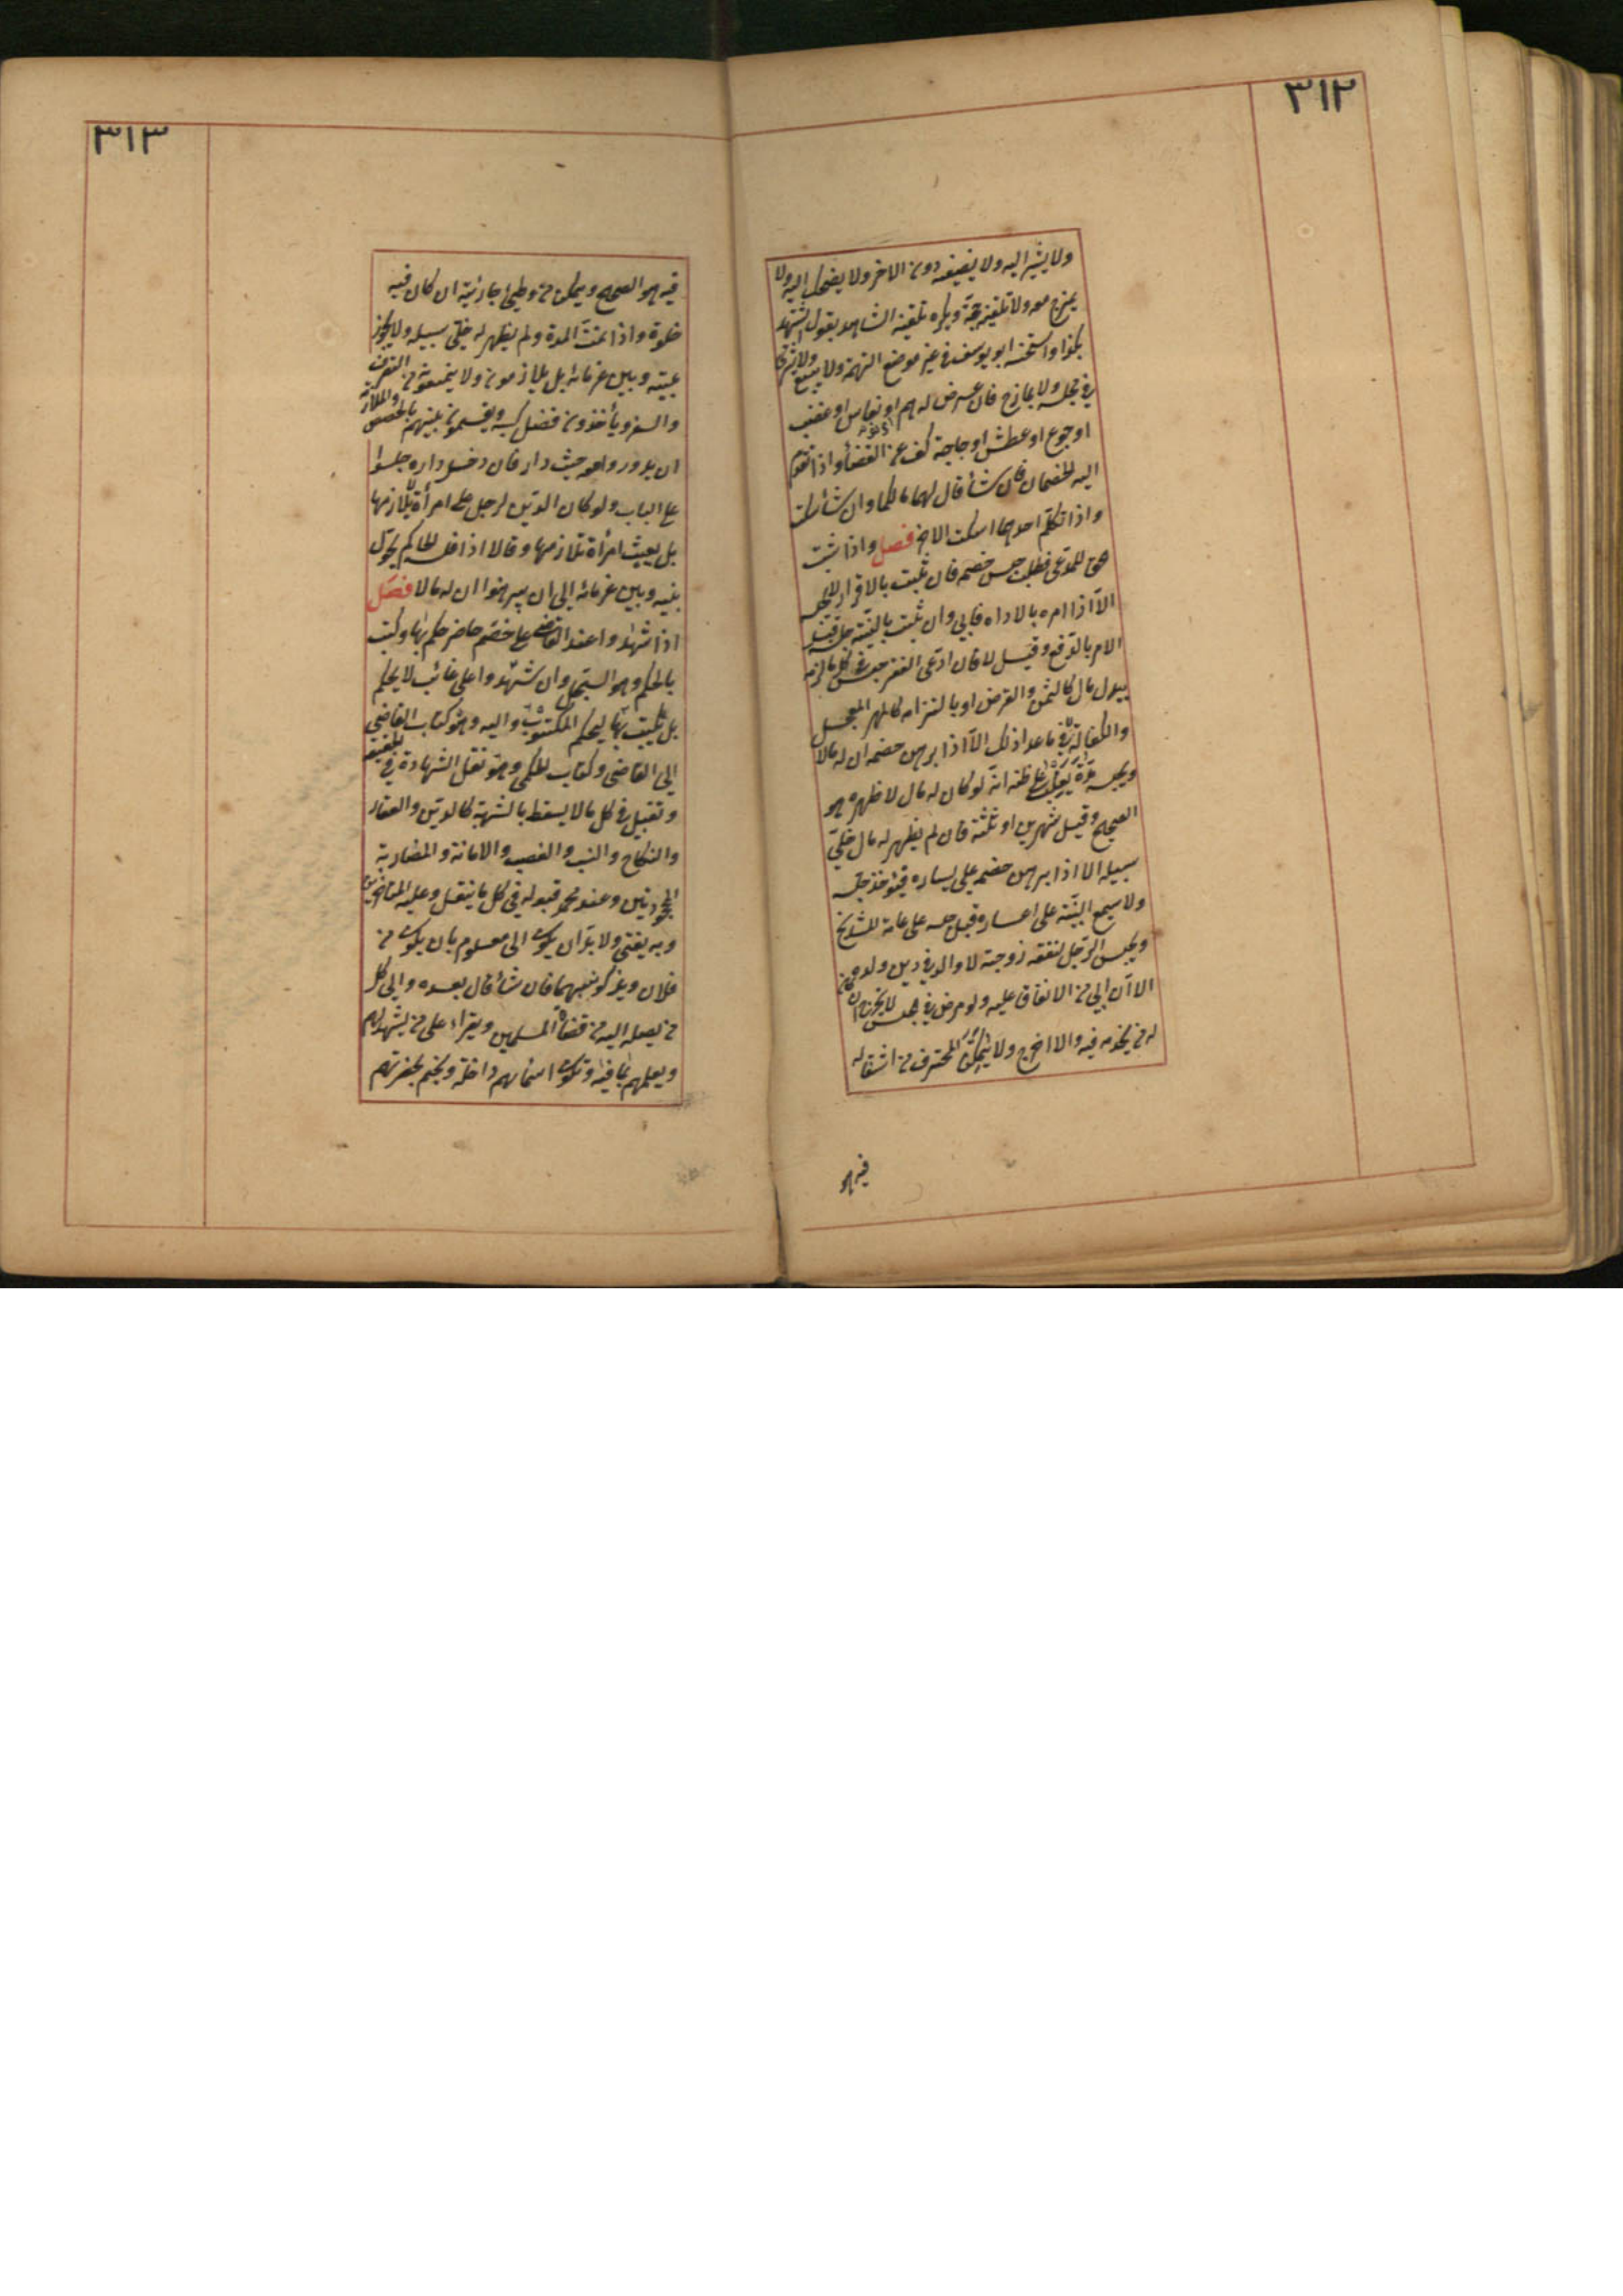 ٣١٢
ولا يشير اليه ولا يضيفه دون الاخر ولا يضحك اليه ولا
يمزح معه ولا تلقينه حجة ويكره تلقينه الشاهد بقوله اتشهد
بكذا واستحسنه ابو يوسف في غير موضع التهمة ولا يبيع ولا يشتري
في مجلسه ولا يمازح فان عرض له هم او نعاس او غضب
او جوع او عطش او حاجة كف عن القضأ واذا تقدم
اليه الخصمان فان شأ قال لهما مالكما وان شأ سكت
واذا تكلم احدهما اسكت الاخر فصل واذا ثبت
حق للمدعي فطلب حبس خصمه فان ثبت بالاقرار لا يحبسه
الا اذا امره بالاداء فابى وان ثبت بالبينة حبسه قبل
الامر بالدفع وقيل لا فان ادعى الفقر حبسه في كل ما لزمه
ببدل مال كالثمن والقرض او بالتزامه كالمهر المعجل
والكفالة لا في ما عدا ذلك الا اذا برهن خصمه ان له مالا
ويحبسه مدة يغلب على ظنه انه لو كان له مال لاظهره هو
الصحيح وقيل شهرين او ثلثة فان لم يظهر له مال خلي
سبيله الا اذا برهن خصمه على يساره فيؤخذ حبسه
ولا سيمع البينة على اعساره قبل حبسه على عامة المشايخ
ويحبس الرجل لنفقة زوجته لا والد في دين ولده
الا ان ابى من الانفاق عليه ولو مرض في حبسه لا يخرج ان كان
له من يخدمه فيه والا اخرج ولا يمكن المحترف من اشتغاله
فيه هو
٣١٣
فيه هو الصحيح ويمكن من وطئ جاريته ان كان فيه
خلوة واذا تمت المدة ولم يظهر له خلي سبيله ولا يحول
بينه وبين غرمائه بل يلازمونه ولا يمنعونه من التصرف
والسفر ويأخذون فضل كسبه ويقسمون بينهم بالحصص والملازمة
ان يدور معه حيث دار فان دخل داره جلسوا
على الباب ولو كان الدين لرجل على امرأة لا يلازمها
بل يبعث امرأة تلازمها وقالا اذا فلسه الحاكم يحول
بينه وبين غرمائه الى ان يبرهنوا ان له مالا فصل
اذا شهدوا عند القاضي على خصم حاضر حكم بها وكتب
بالحكم وهو السجل وان شهدوا على غائب لا يحكم
بل يكتب بها ليحكم المكتوب اليه وهو كتاب القاضي
الى القاضي وكتاب الحكمي وهو نقل الشهادة في الحقيقة
وتقبل في كل ما لا يسقط بالشبهة كالدين والعقار
والنكاح والنسب والغصب والامانة والمضاربة
المجحودتين وعند محمد قبوله في كل ما ينقل وعليه المتأخرين
وبه يفتى ولا بد ان يكون الى معلوم بان يكون من
فلان ويذكر نسبهما فان شأ قال بعده والى كل
من يصله اليه من قضاة المسلمين ويقراء على من يشهدهم
ويعلمهم بما فيه وتكون اسماؤهم داخله ويختم بحضرتهم